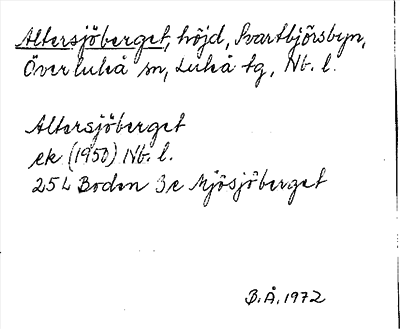 Altersjöberget, höjd, Svartbjörsbyn,
Överluleå sn, Luleå tg, Nb. l.
Altersjöberget
ek (1950) Nb. l.
25 L Boden 3e Mjösjöberget
B.Å. 1972